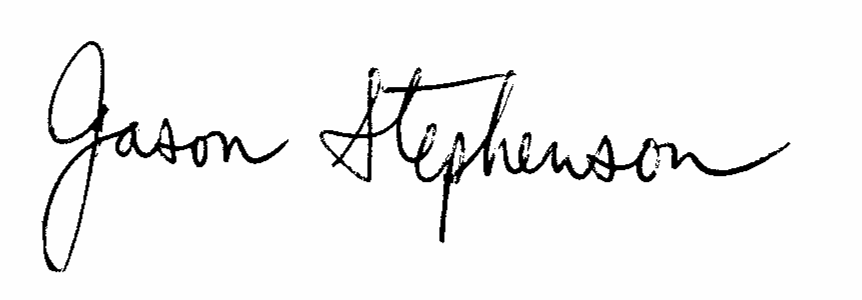 Jason Stephenson